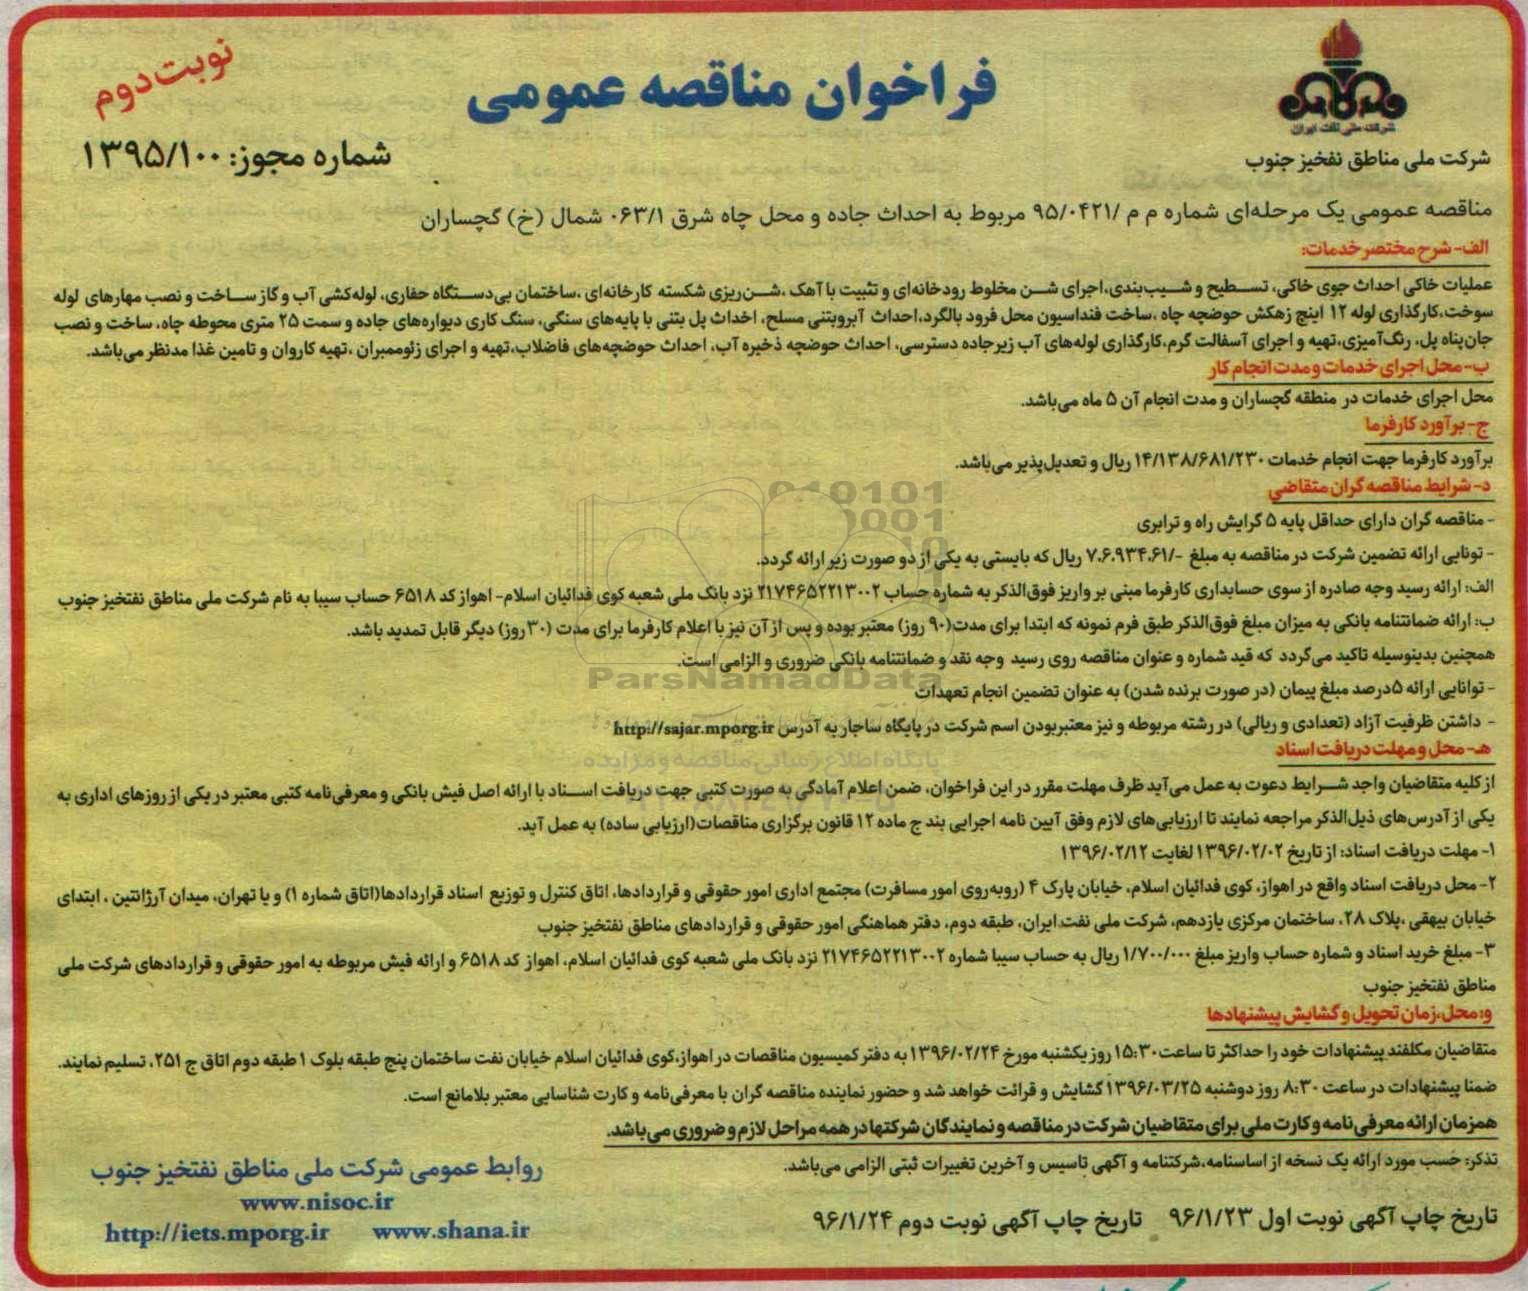 نوبت دوم
فراخوان مناقصه عمومی
شرکت ملی نفت ایران
شماره مجوز: ۱۳۹۵/۱۰۰
شرکت ملی مناطق نفخیز جنوب
مناقصه عمومی یک مرحله‌ای شماره م م /۹۵/۰۴۲۱ مربوط به احداث جاده و محل چاه شرق ۰۶۳/۱ شمال (خ) گچساران
الف- شرح مختصر خدمات:
عملیات خاکی احداث جوی خاکی، تسطیح و شیب‌بندی،اجرای شن مخلوط رودخانه‌ای و تثبیت با آهک ،شن‌ریزی شکسته کارخانه‌ای ،ساختمان بی‌دستگاه حفاری، لوله‌کشی آب و گاز ساخت و نصب مهارهای لوله
سوخت،کارگذاری لوله ۱۲ اینچ زهکش حوضچه چاه ،ساخت فنداسیون محل فرود بالگرد،احداث آبروبتنی مسلح، اخداث پل بتنی با پایه‌های سنگی، سنگ کاری دیواره‌های جاده و سمت ۲۵ متری محوطه چاه، ساخت و نصب
جان‌پناه پل، رنگ‌آمیزی،تهیه و اجرای آسفالت گرم،کارگذاری لوله‌های آب زیرجاده دسترسی، احداث حوضچه ذخیره آب، احداث حوضچه‌های فاضلاب،تهیه و اجرای ژئوممبران ،تهیه کاروان و تامین غذا مدنظر می‌باشد.
ب- محل اجرای خدمات و مدت انجام کار
محل اجرای خدمات در منطقه گچساران و مدت انجام آن ۵ ماه می‌باشد.
ج- برآورد کارفرما
برآورد کارفرما جهت انجام خدمات ۱۴/۱۳۸/۶۸۱/۲۳۰ ریال و تعدیل‌پذیر می‌باشد.
د- شرایط مناقصه گران متقاضی
- مناقصه گران دارای حداقل پایه ۵ گرایش راه و ترابری
- توانایی ارائه تضمین شرکت در مناقصه به مبلغ -/۷.۶.۹۳۴.۶۱ ریال که بایستی به یکی از دو صورت زیر ارائه گردد.
الف: ارائه رسید وجه صادره از سوی حسابداری کارفرما مبنی بر واریز فوق‌الذکر به شماره حساب ۲۱۷۴۶۵۲۲۱۳۰۰۲ نزد بانک ملی شعبه کوی فدائیان اسلام- اهواز کد ۶۵۱۸ حساب سیبا به نام شرکت ملی مناطق نفتخیز جنوب
ب: ارائه ضمانتنامه بانکی به میزان مبلغ فوق‌الذکر طبق فرم نمونه که ابتدا برای مدت(۹۰ روز) معتبر بوده و پس از آن نیز با اعلام کارفرما برای مدت (۳۰ روز) دیگر قابل تمدید باشد.
همچنین بدینوسیله تاکید می‌گردد که قید شماره و عنوان مناقصه روی رسید وجه نقد و ضمانتنامه بانکی ضروری و الزامی است.
- توانایی ارائه ۵درصد مبلغ پیمان (در صورت برنده شدن) به عنوان تضمین انجام تعهدات
- داشتن ظرفیت آزاد (تعدادی و ریالی) در رشته مربوطه و نیز معتبربودن اسم شرکت در پایگاه ساجار به آدرس http://sajar.mporg.ir
هـ- محل و مهلت دریافت اسناد
از کلیه متقاضیان واجد شرایط دعوت به عمل می‌آید ظرف مهلت مقرر در این فراخوان، ضمن اعلام آمادگی به صورت کتبی جهت دریافت اسناد با ارائه اصل فیش بانکی و معرفی‌نامه کتبی معتبر در یکی از روزهای اداری به
یکی از آدرس‌های ذیل‌الذکر مراجعه نمایند تا ارزیابی‌های لازم وفق آیین نامه اجرایی بند ج ماده ۱۲ قانون برگزاری مناقصات(ارزیابی ساده) به عمل آید.
۱- مهلت دریافت اسناد: از تاریخ ۱۳۹۶/۰۲/۰۲ لغایت ۱۳۹۶/۰۲/۱۲
۲- محل دریافت اسناد واقع در اهواز، کوی فدائیان اسلام، خیابان پارک ۴ (روبه‌روی امور مسافرت) مجتمع اداری امور حقوقی و قراردادها، اتاق کنترل و توزیع اسناد قراردادها(اتاق شماره ۱) و یا تهران، میدان آرژانتین ، ابتدای
خیابان بیهقی ،پلاک ۲۸، ساختمان مرکزی یازدهم، شرکت ملی نفت ایران، طبقه دوم، دفتر هماهنگی امور حقوقی و قراردادهای مناطق نفتخیز جنوب
۳- مبلغ خرید اسناد و شماره حساب واریز مبلغ ۱/۷۰۰/۰۰۰ ریال به حساب سیبا شماره ۲۱۷۴۶۵۲۲۱۳۰۰۲ نزد بانک ملی شعبه کوی فدائیان اسلام، اهواز کد ۶۵۱۸ و ارائه فیش مربوطه به امور حقوقی و قراردادهای شرکت ملی
مناطق نفتخیز جنوب
و: محل،زمان تحویل و گشایش پیشنهادها
متقاضیان مکلفند پیشنهادات خود را حداکثر تا ساعت ۱۵:۳۰ روز یکشنبه مورخ ۱۳۹۶/۰۲/۲۴ به دفتر کمیسیون مناقصات در اهواز،کوی فدائیان اسلام خیابان نفت ساختمان پنج طبقه بلوک ۱ طبقه دوم اتاق ج ۲۵۱، تسلیم نمایند.
ضمنا پیشنهادات در ساعت ۸:۳۰ روز دوشنبه ۱۳۹۶/۰۳/۲۵ گشایش و قرائت خواهد شد و حضور نماینده مناقصه گران با معرفی‌نامه و کارت شناسایی معتبر بلامانع است.
همزمان ارائه معرفی‌نامه و کارت ملی برای متقاضیان شرکت در مناقصه و نمایندگان شرکتها در همه مراحل لازم و ضروری می‌باشد.
تذکر: حسب مورد ارائه یک نسخه از اساسنامه،شرکتنامه و آگهی تاسیس و آخرین تغییرات ثبتی الزامی می‌باشد.
روابط عمومی شرکت ملی مناطق نفتخیز جنوب
www.nisoc.ir
http://iets.mporg.ir www.shana.ir
تاریخ چاپ آگهی نوبت اول ۹۶/۱/۲۳ تاریخ چاپ آگهی نوبت دوم ۹۶/۱/۲۴
ParsNamadData
پایگاه اطلاع رسانی مناقصه و مزایده